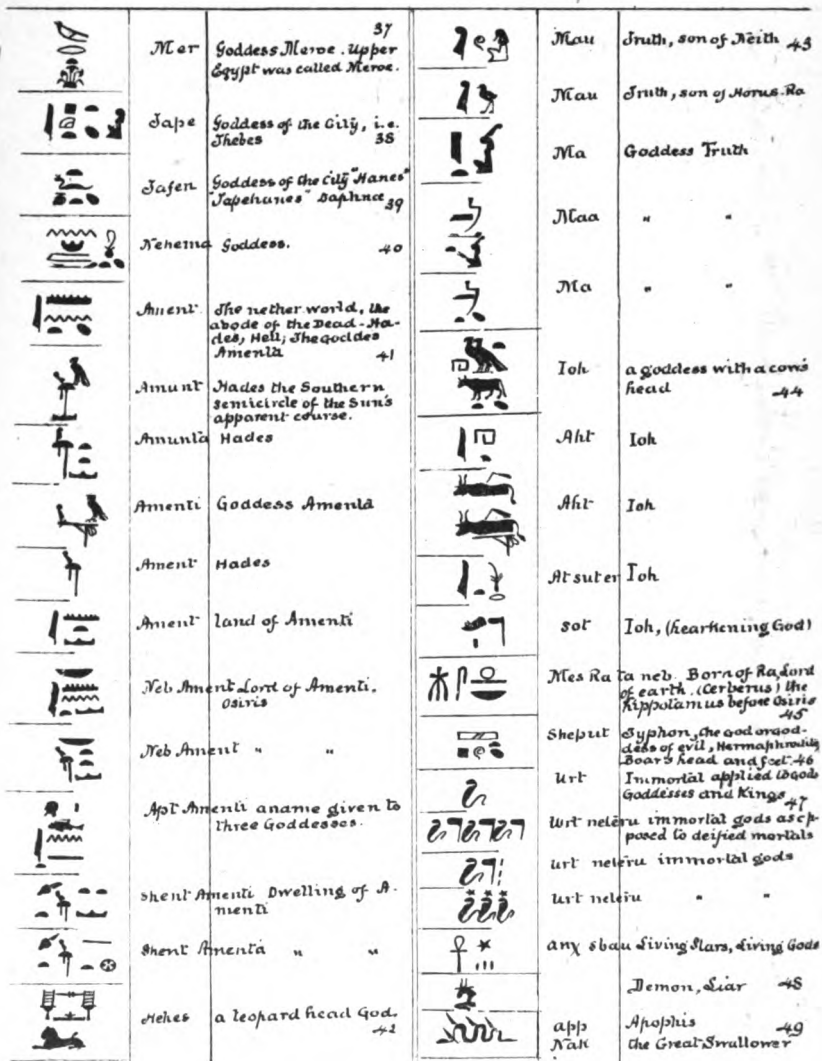 37
Mer Goddess Meroe. Upper
Egypt was called Meroe.
Tape Goddess of the City, i.e.
Thebes 38
Tafen Goddess of the City "Hanes"
"Tapehanes" Daphnae 39
Nehema Goddess. 40
Ament The nether world, the
abode of the Dead-Ha-
des, Hell; The goddes
Amenta 41
Amunt Hades the Southern
semicircle of the Sun's
apparent course.
Amunta Hades
Amenti Goddess Amenta
Ament Hades
Ament land of Amenti
Neb Ament Lord of Amenti.
Osiris
Neb Ament " "
Apt Amenti a name given to
three Goddesses.
Shent Amenti Dwelling of A-
menti
Shent Amenta " "
Hekes a leopard head God.
42
Mau Truth, son of Neith 43
Mau Truth, son of Horus-Ra
Ma Goddess Truth
Maa " "
Ma " "
Ioh a goddess with a cow's
head 44
Aht Ioh
Aht Ioh
At suter Ioh
sot Ioh, (hearkening God)
Mes Ra ta neb. Born of Ra, Lord
of earth. (Cerberus) the
hippotamus before Osiris
45
Sheput Typhon, the god or god-
dess of evil, Hermaphrodite
Boar's head and feet. 46
Urt Immortal applied to gods
Goddesses and Kings 47
Urt neteru immortal gods as op-
posed to deified mortals
urt neteru immortal gods
urt neteru " "
anχ sbau Living Stars, Living Gods
Demon, Liar 48
app Apophis 49
Nak the Great Swallower